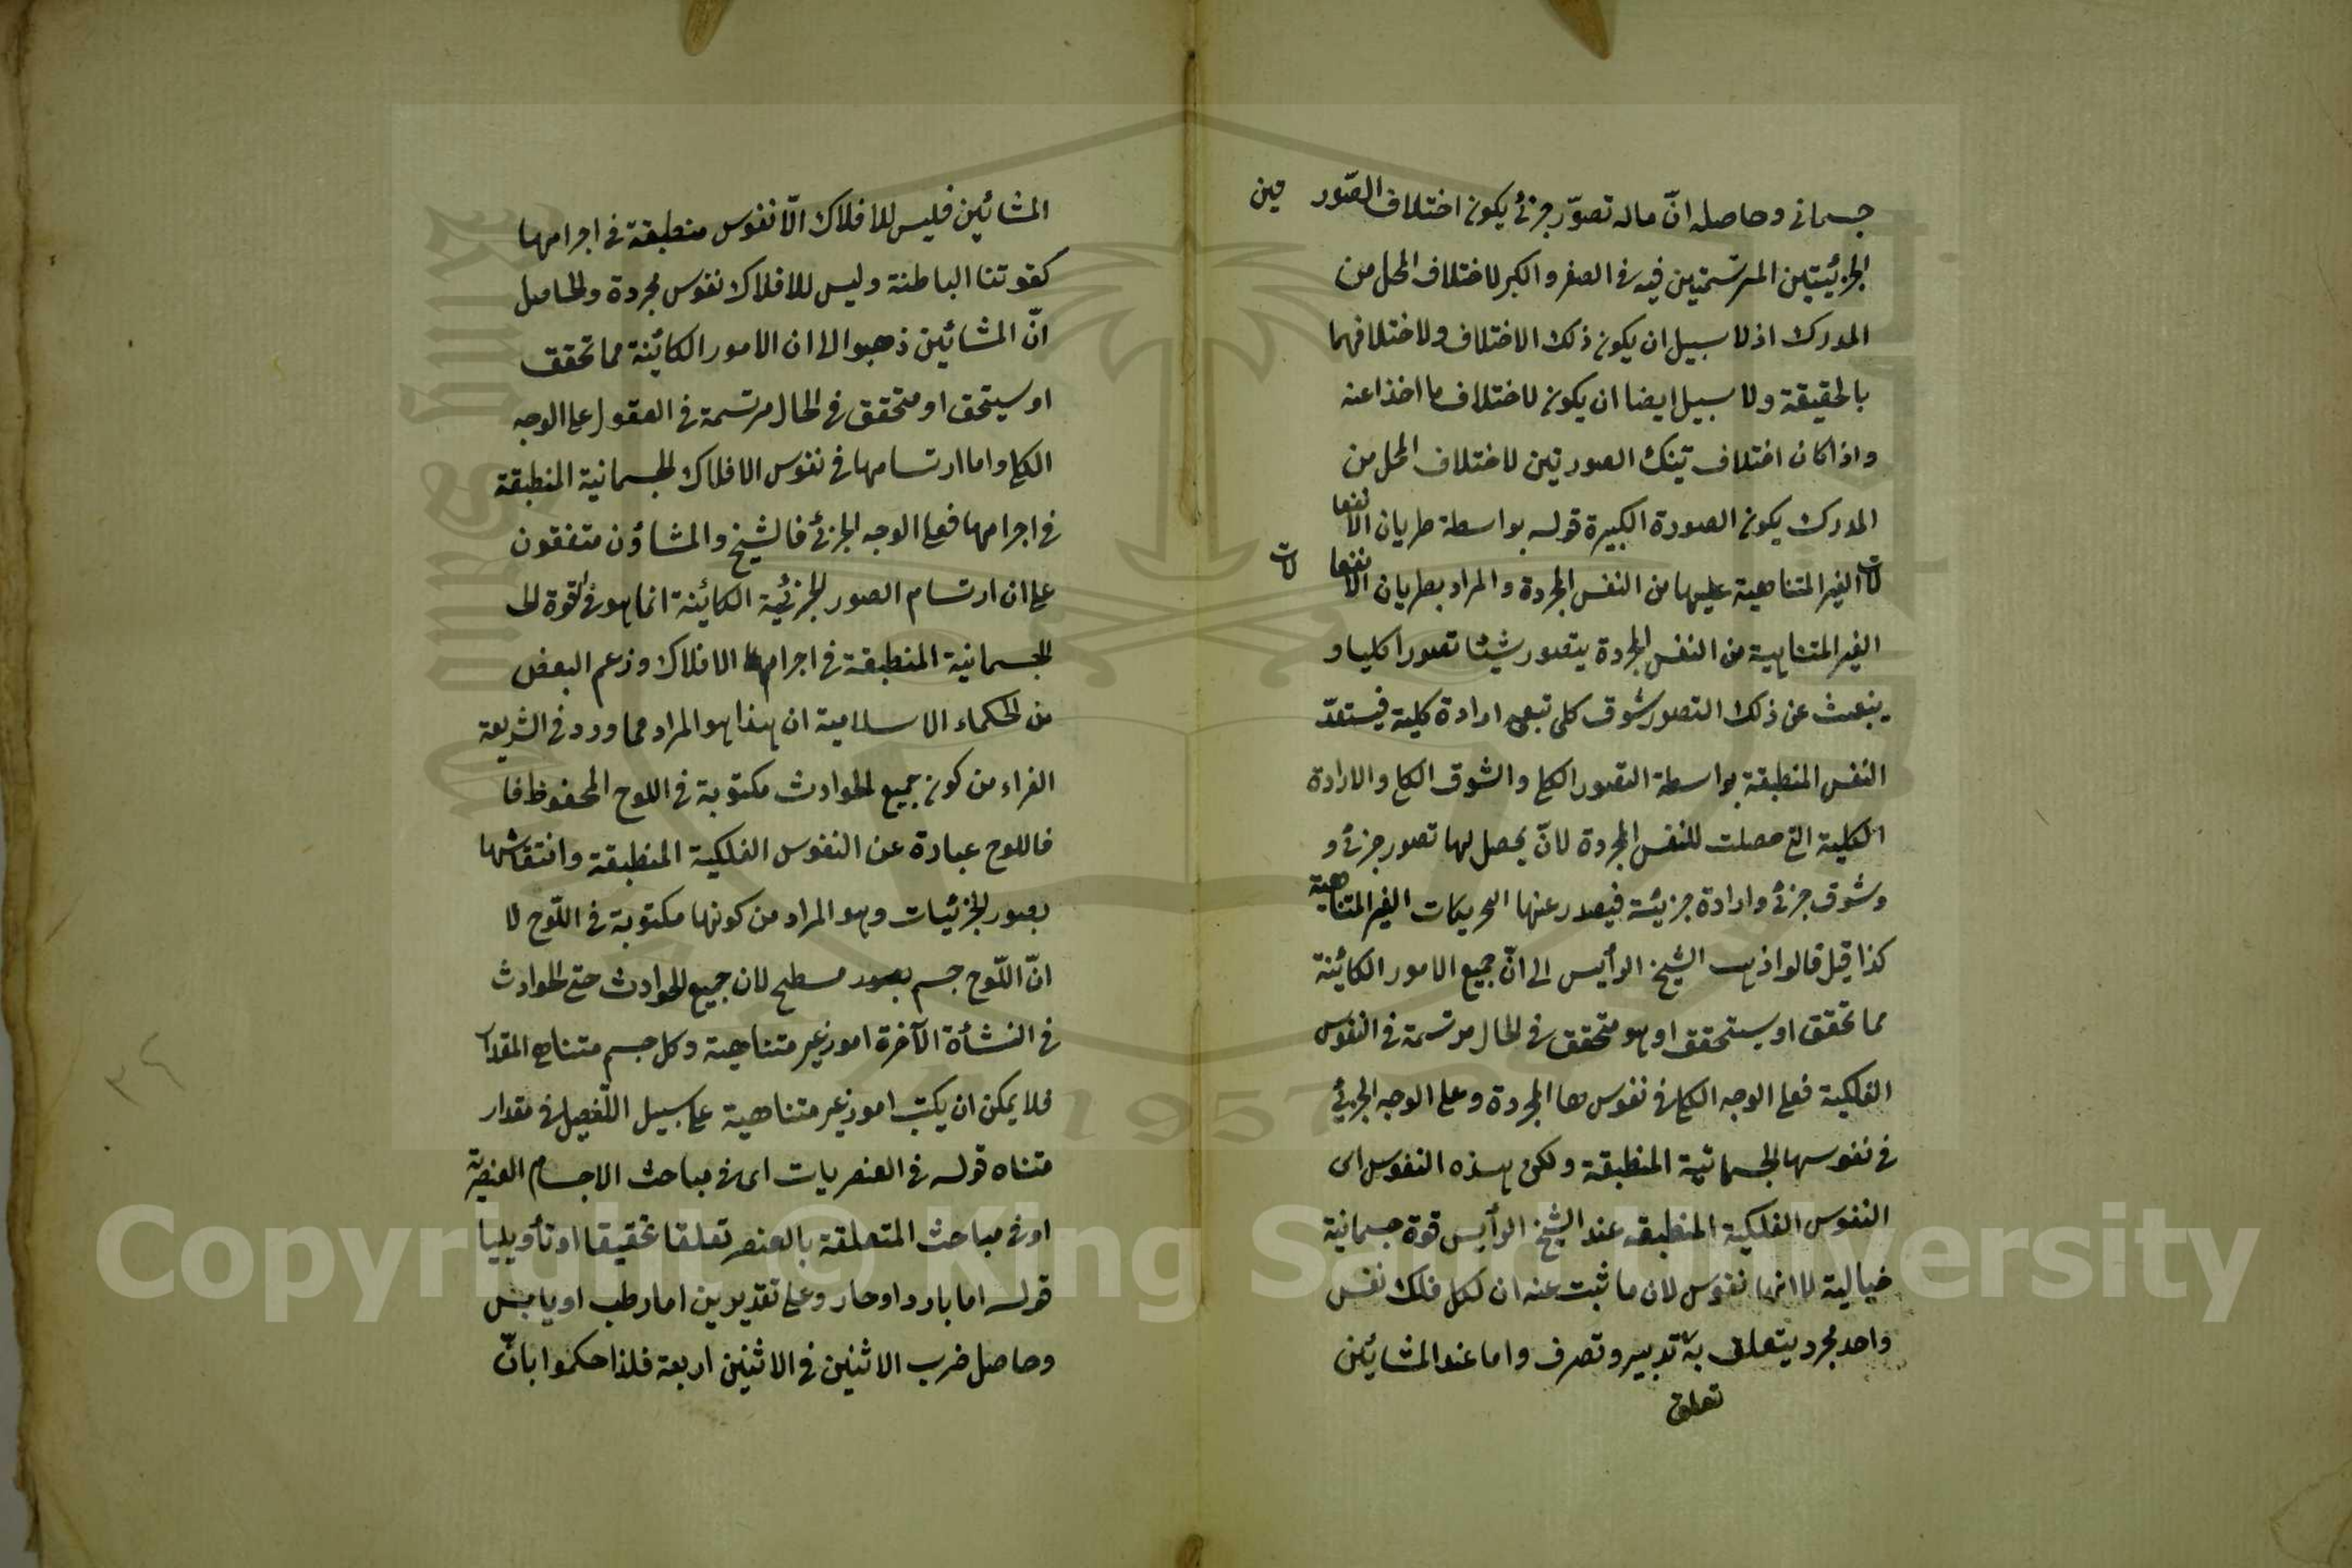 جسمانى وحاصله انّ ماله تصوّر جزئى يكون اختلاف الصّور تين
الجزئيتين المرتسمتين فيه فى الصغر والكبر لاختلاف المحل من
المدرك اذ لا سبيل ان يكون ذلك الاختلاف ولاختلافهما
بالحقيقة ولا سبيل ايضا ان يكون لاختلاف ما اخذا عنه
واذا كان اختلاف تينك الصورتين لاختلاف المحل من
المدرك يكون الصورة الكبيرة قوله بواسطة طريان الانفعا
لات الغير المتناهية عليها من النفس المجردة والمراد بطريان الانفعا لات
الغير المتناهية من النفس المجردة يتصور شيئا تصورا كليا و
ينبعث عن ذلك التصور شوق كلى تبعه ارادة كلية فيستعدّ
النفس المنطبقة بواسطة التصور الكلى والشوق الكلى والارادة
الكلية التى حصلت للنفس المجردة لانّ يحصل لها تصور جزئى و
وشوق جزئى وارادة جزئية فيصدر عنها التحريكات الغير المتناهية
كذا قيل قالوا ذهب الشيخ الرأيس الى انّ جميع الامور الكائنة
مما تحقق او سيتحقق او هو متحقق فى الحال مرتسمة فى النفوس
الفلكية فعلى الوجه الكلى فى نفوسها المجردة وعلى الوجه الجزئى
فى نفوسها الجسمانية المنطبقة ولكن هذه النفوس اى
النفوس الفلكية المنطبقة عند الشيخ الرأيس قوة جسمانية
خيالية لا انها نفوس لان ما ثبت عنه ان لكل فلك نفس
واحد مجرد يتعلق به تدبير وتصرف واما عند المشائين
تعلق
المشائين فليس للافلاك الّا نفوس منطبقة فى اجرامها
كقوتنا الباطنة وليس للافلاك نفوس مجردة والحاصل
انّ المشائين ذهبوا الى ان الامور الكائنة مما تحقق
او سيتحق او متحقق فى الحال مرتسمة فى العقول على الوجه
الكلى واما ارتسامها فى نفوس الافلاك الجسمانية المنطبقة
فى اجرامها فعلى الوجه الجزئى فالشيخ والمشاؤن متفقون
على ان ارتسام الصور الجزئية الكائنة انما هو فى القوة الحا
الجسمانية المنطبقة فى اجرام الافلاك وزعم البعض
من الحكماء الاسلامية ان هذا هو المراد مما ورد فى الشريعة
الغراء من كون جميع الحوادث مكتوبة فى اللوح المحفوظ فا
فاللوح عبارة عن النفوس الفلكية المنطبقة وانتقاشها
بصور الجزئيات وهو المراد من كونها مكتوبة فى اللّوح لا
انّ اللّوح جسم مسطح لان جميع الحوادث حتى الحوادث
فى النشأة الآخرة امور غير متناهية وكل جسم متناهى المقدار
فلا يمكن ان يكتب امور غير متناهية على سبيل التّفصيل فى مقدار
متناه قوله فى العنصريات اى فى مباحث الاجسام العنصرية
او فى مباحث المتعلقة بالعنصر تعلقا تحقيقا او تأويليا
قوله اما بارد او حار وعلى تقديرين اما رطب او يابس
وحاصل ضرب الاثنين فى الاثنين اربعة فلذا حكموا بانّ
٣٤
Copyright © King Saud University
1957